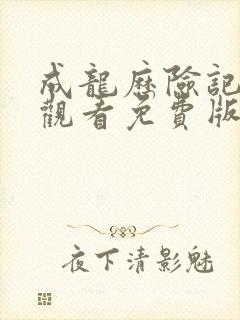 成龍歷險記
觀看免費版
夜下清影魅